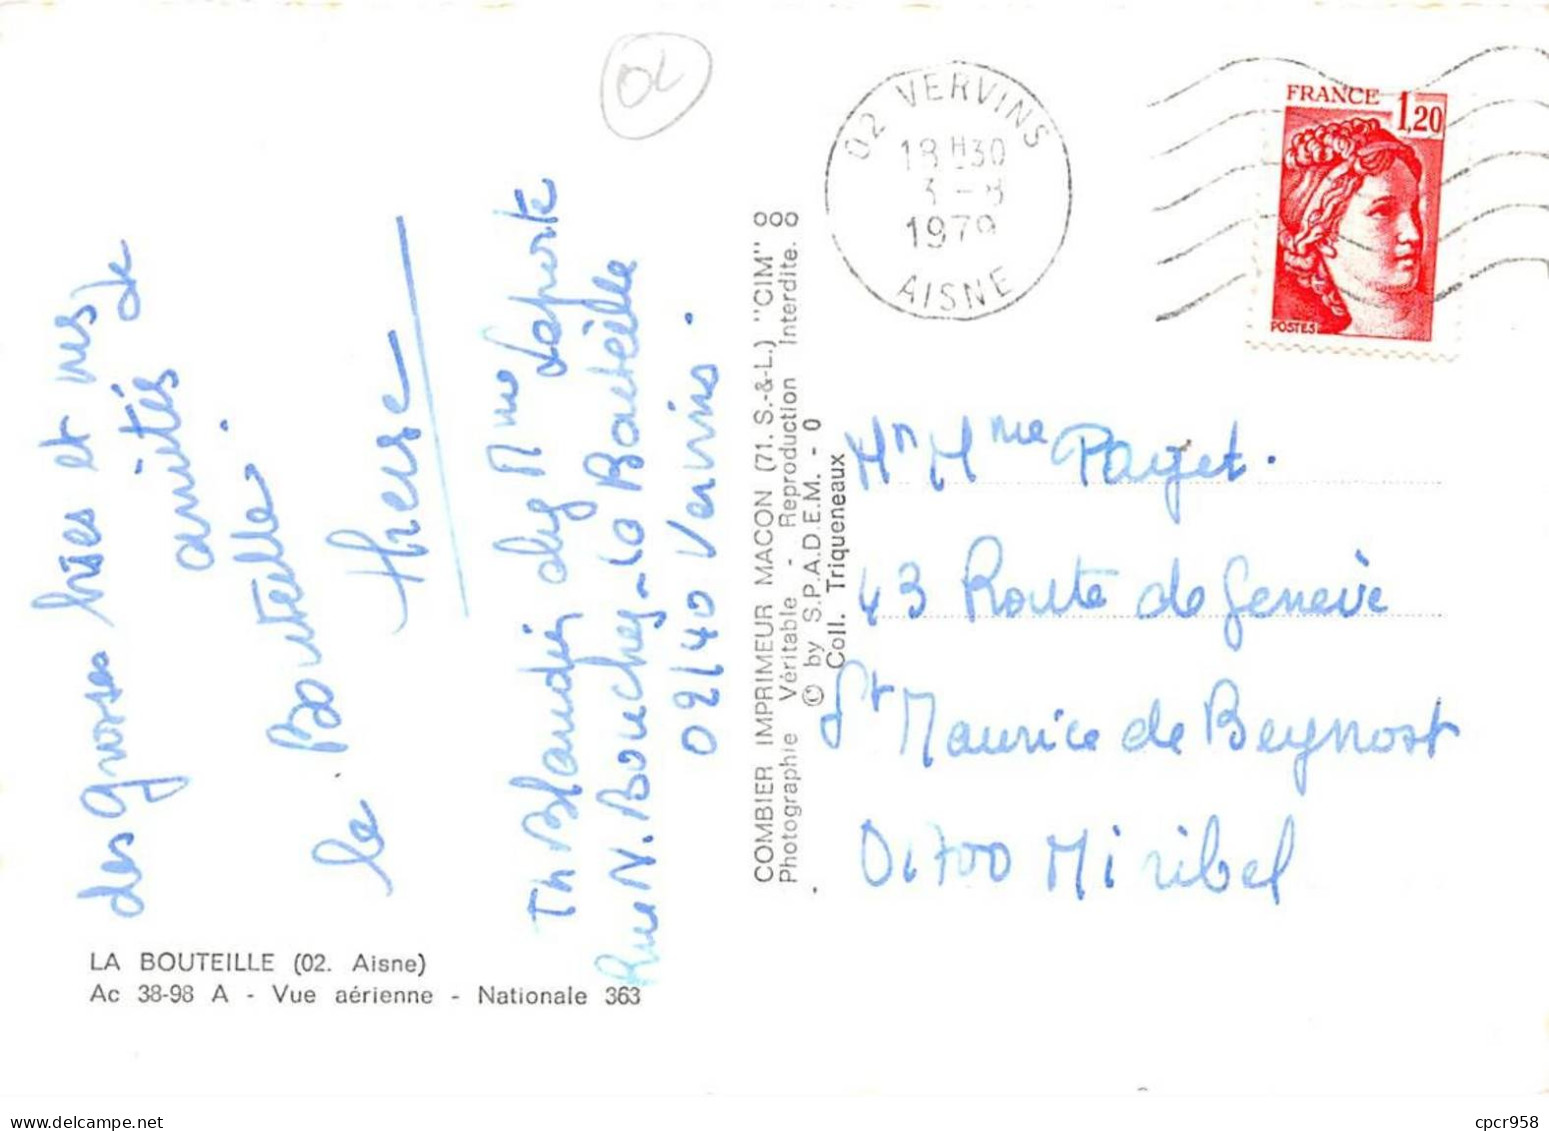 02 VERVINS
18H30
3 - 8
1979
AISNE
FRANCE 1,20
POSTES
des grosses bises et mes
amitiés de
la Bouteille.
Therese
Th Blandin chez Mme Laporte
Rue N. Bouchez - La Bouteille
02140 Vervins.
COMBIER IMPRIMEUR MACON (71. S.-&-L.) "CIM"
Photographie Véritable - Reproduction Interdite.
© by S.P.A.D.E.M. - 0
Coll. Triqueneaux
Mr Mme Payet.
43 Route de Genève
St Maurice de Beynost
01700 Miribel
LA BOUTEILLE (02. Aisne)
Ac 38-98 A - Vue aérienne - Nationale 363
delcampe.net
cpcr958